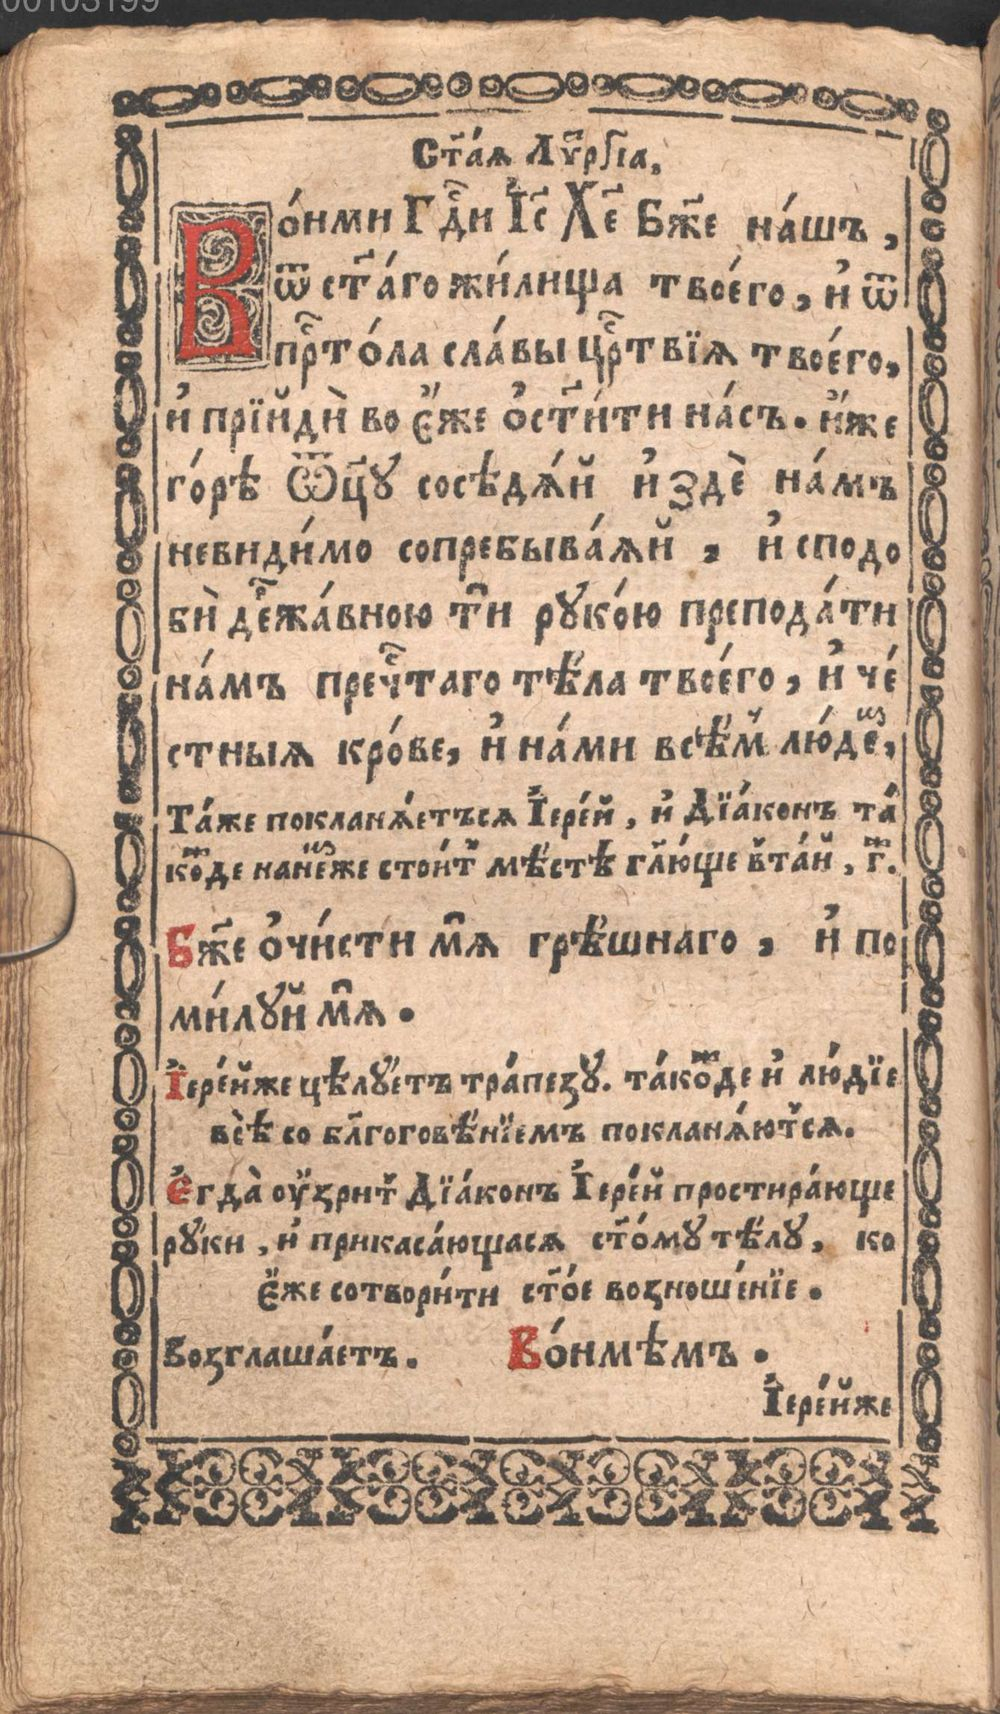 00103199
Ст҃аѧ Лѵ҃ргїа,
Во́нми Гдⷭ҇и І҆с҃ Хе҃ Бж҃е на́шъ,
ѿ ст҃а́го жи́лища твоегѡ́, и҆ ѿ
прⷭ҇то́ла сла́вы црⷭ҇твїѧ твоегѡ,
и҆ прїйдѝ во є҆́же ѡ҆ст҃и́ти на́съ. и҆́же
го́рѣ Ѿц҃у сосѣдѧ́й и҆ здѐ на́мъ
невиди́мо сопребыва́ѧй, и҆ сподо
бѝ де́ржа́вною тⷡ҇ои руко́ю препода́ти
на́мъ пречⷭ҇таго тѣ́ла твоего, и҆ че́
стныѧ кро́ве, и҆ на́ми всѣ́мⷨ лю́деⷨ,
Та́же покланѧ́етъсѧ І҆ере́й, и҆ Дїа́конъ та́
коⷤде на не́мже стои́тⷮ мѣ́стѣ гл҃ю́ще в̾та́й, г҃.
Бж҃е ѡ҆чи́сти мѧ̀ грѣ́шнаго, и҆ по
ми́луй мѧ̀.
І҆ере́йже цѣлу́етъ тра́пезу. та́коⷤде и҆ лю́дїе
всѐѣ со бл҃гоговѣ́нїемъ покланѧ́ютⷭ҇ѧ.
Е҆гда̀ оу҆́зритⷮ Дїа́конъ І҆ере́й простира́юще
ру́ки, и҆ прикаса́ющасѧ ст҃о́му тѣ́лу, ко
є҆́же сотвори́ти ст҃о́е возноше́нїе.
Возглаша́етъ. Во́нмѣмъ.
І҆ере́йже